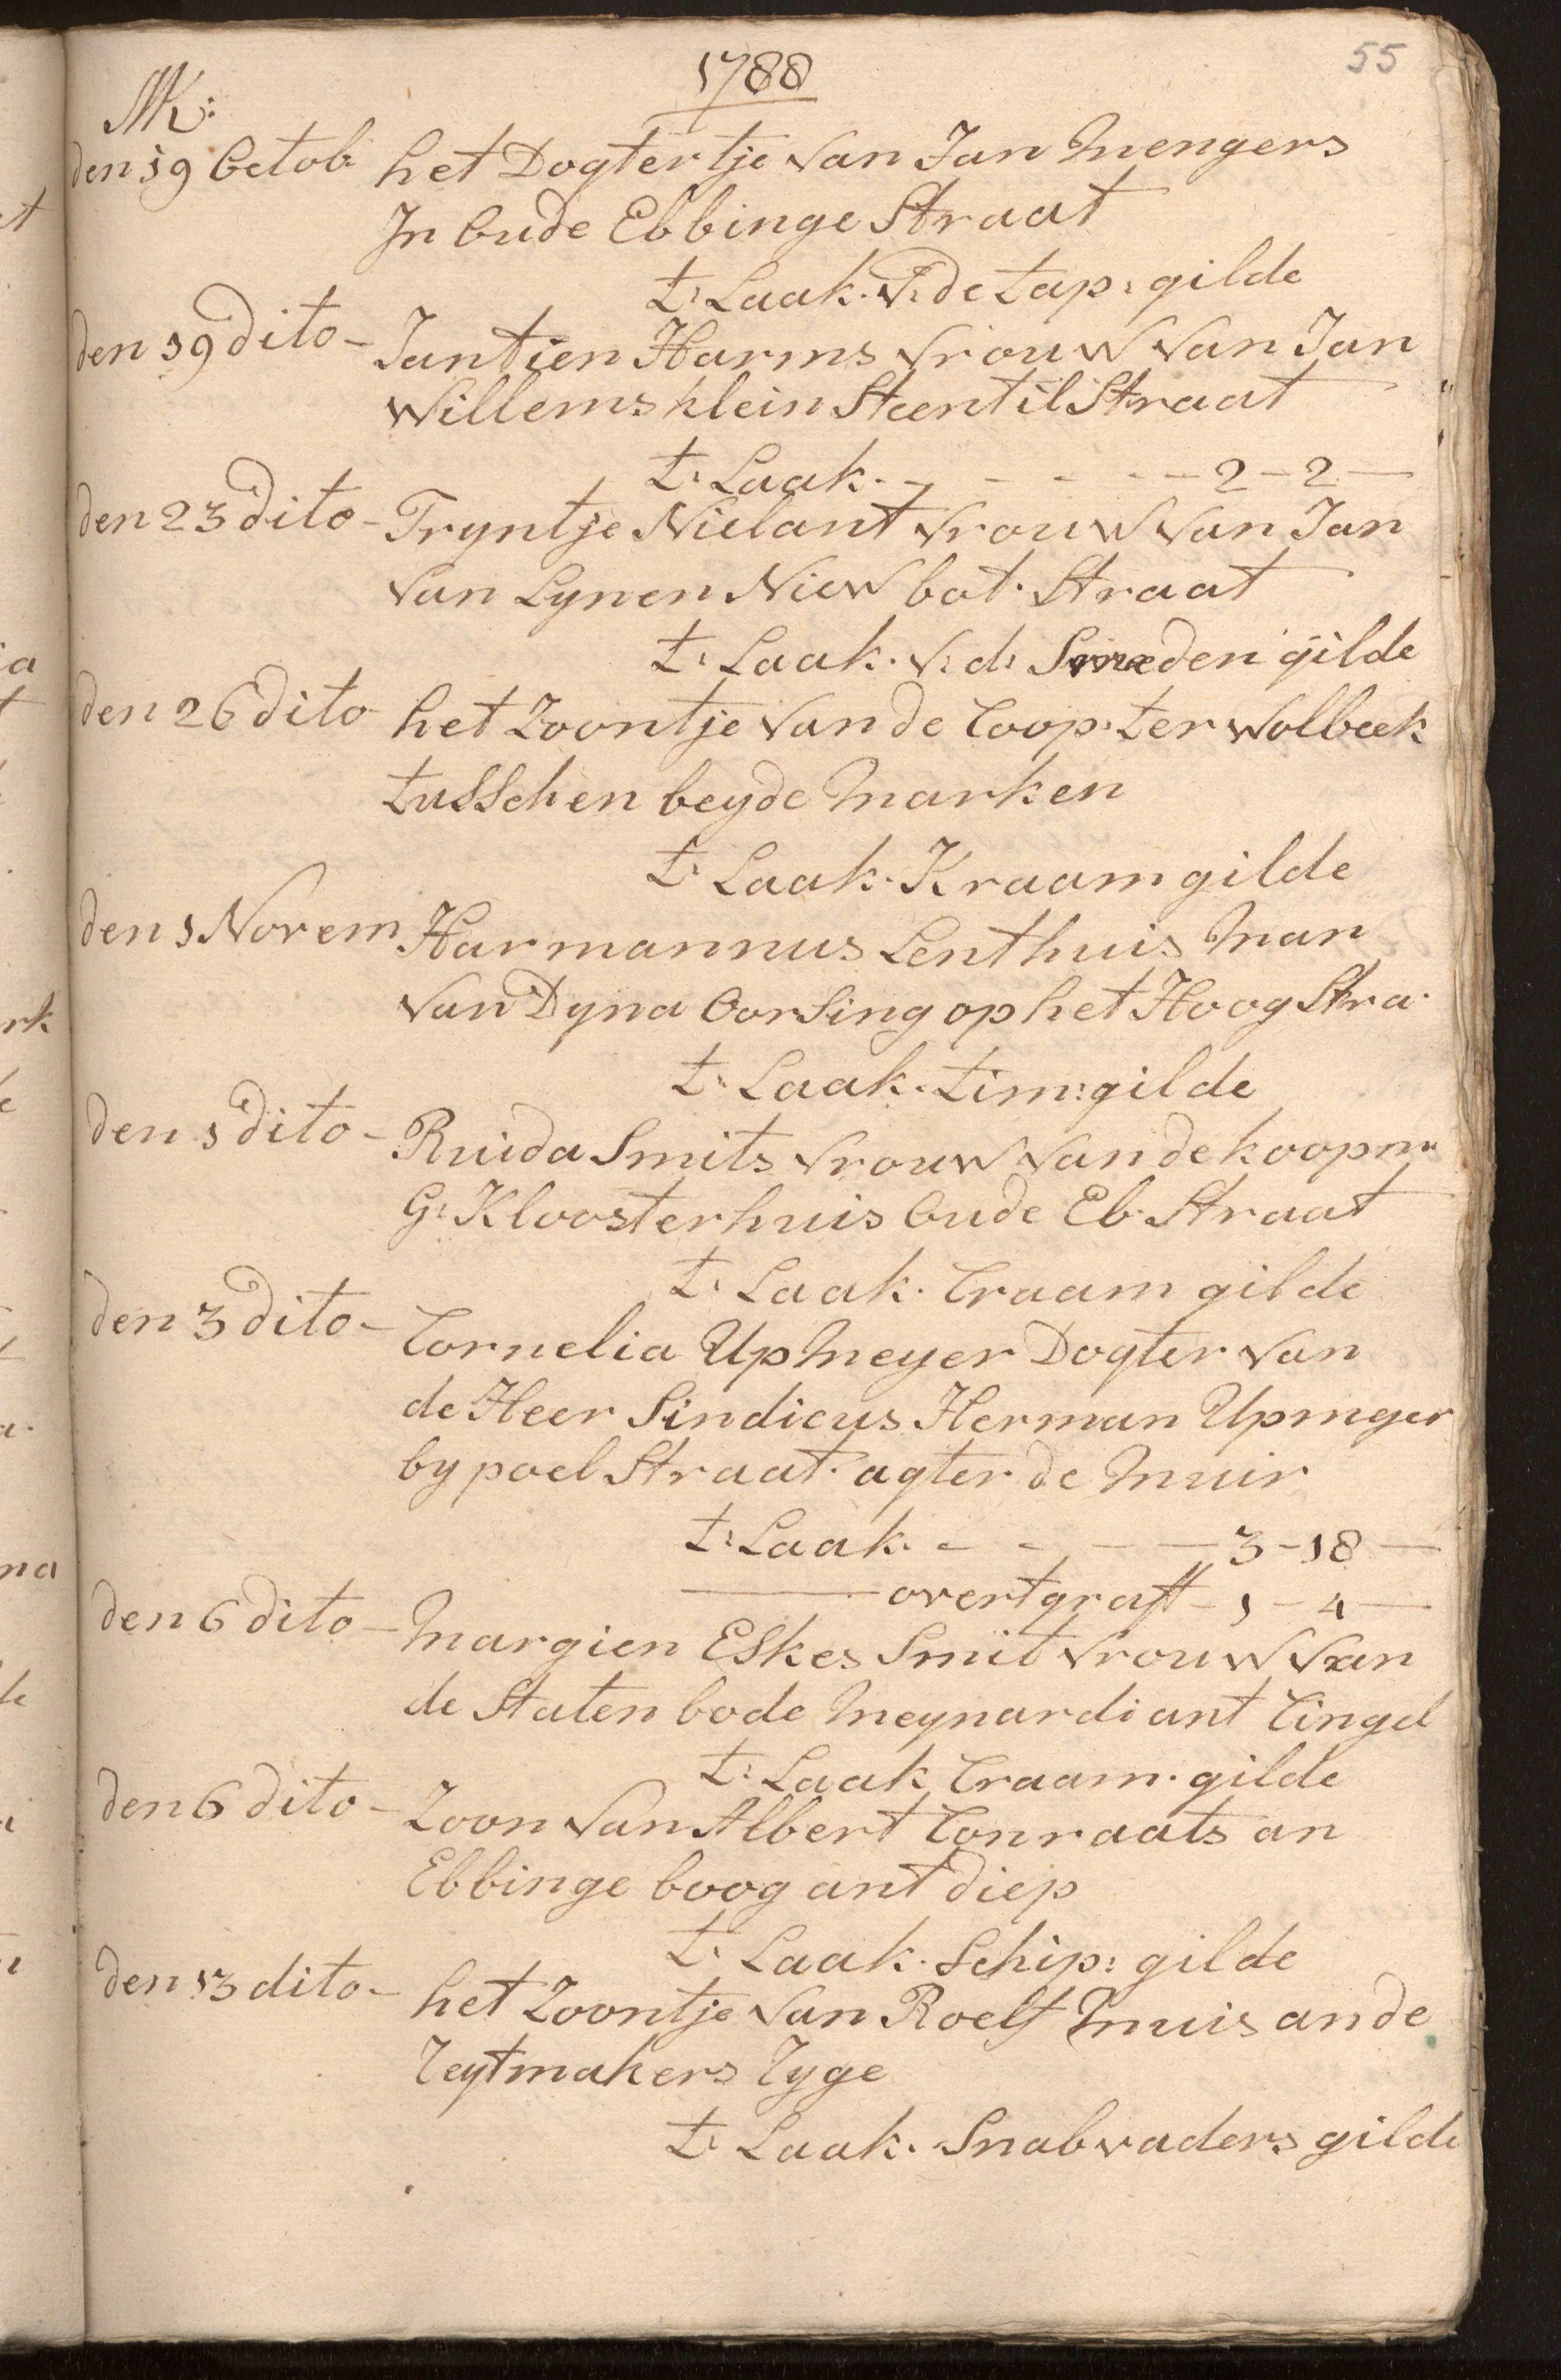 55
1788
MK:
den 19 Octob: het Dogtertje van Jan Mengers
Jn Oude Ebbinge Straat
t: Laak. v: de tap: gilde
den 19 dito - Jantien Harms vrouw van Jan
Willems klein Steentil Straat
t: Laak. - - - - - 2 - 2 -
den 23 dito - Tryntje Nielant vrouw van Jan
van Lynen Niew bot. Straat
t: Laak. v: d: Smeden gilde
den 26 dito het Zoontje van de Coop: ter Wolbeek
tusschen beyde Marken
t: Laak. Kraam gilde
den 1 Novem Harmannus Lenthuis Man
van Dyna Oorsing op het Hoog Stra.
t: Laak. tim: gilde
den 1 dito - Ruida Smits vrouw van de koopm:
G: Kloosterhuis Oude Eb. Straat
t: Laak. Craam gilde
den 3 dito - Cornelia Upmeyer Dogter van
de Heer Sindicus Herman Upmeyer
by poel Straat. agter de Muir
t: Laak. - - - - - 3 - 18 -
overtgraft - 1 - 4 -
den 6 dito - Margien Eskes Smit vrouw van
de Staten bode Meynardi ant Cingel
t: Laak Craam. gilde
den 6 dito - Zoon van Albert Conraats an
Ebbinge boog ant diep
t: Laak. Schip: gilde
den 13 dito - het Zoontje van Roelf Muis an de
Zeytmakers Zyge
t: Laak. Snabvaders gilde